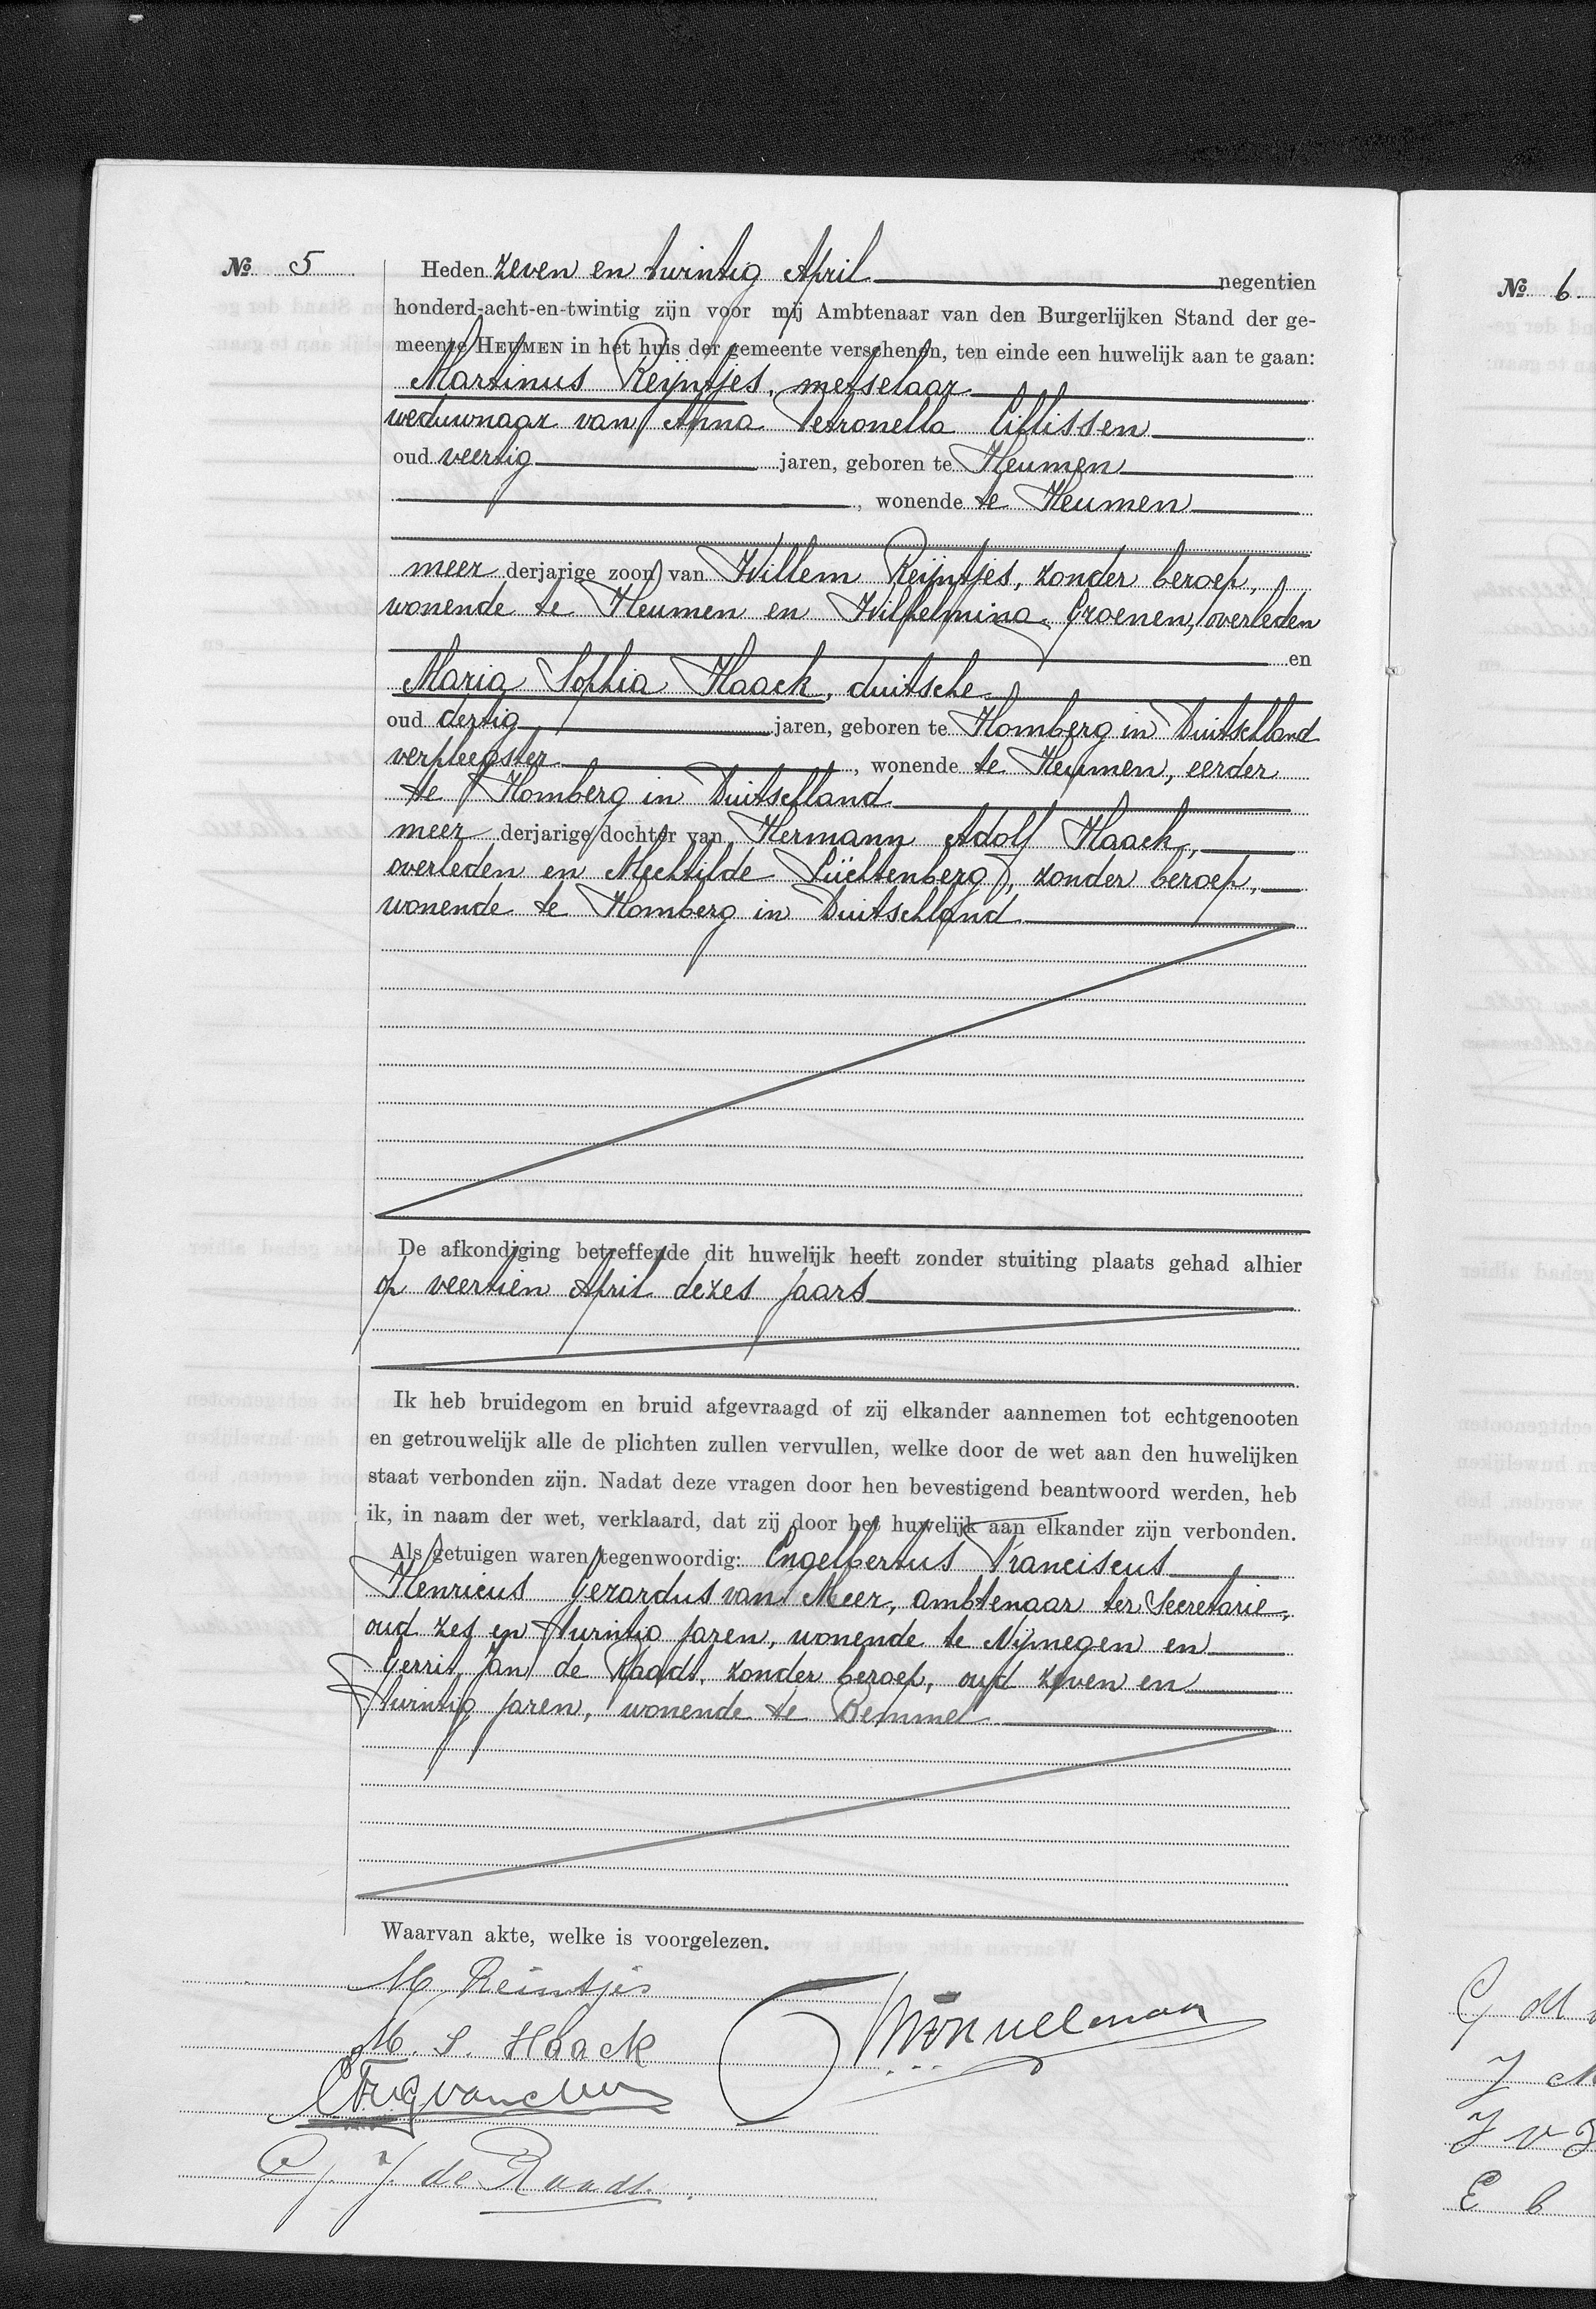 No 5
Heden zeven en twintig April negentien
honderd-acht-en-twintig zijn voor mij Ambtenaar van den Burgerlijken Stand der ge-
meente HEUMEN in het huis der gemeente verschenen, ten einde een huwelijk aan te gaan:
Martinus Reijntjes, metselaar
weduwnaar van Anna Petronella Cillissen
oud veertig jaren, geboren te Heumen
, wonende te Heumen
meer derjarige zoon van Willem Reijntjes, zonder beroep,
wonende te Heumen en Wilhelmina Groenen, overleden
en
Maria Sophia Haack, duitsche
oud dertig jaren, geboren te Homberg in Duitschland
verpleegster, wonende te Heumen, eerder
te Homberg in Duitschland
meer derjarige dochter van Hermann Adolf Haack,
overleden en Mechtilde Lüchtenberg, zonder beroep,
wonende te Homberg in Duitschland
De afkondiging betreffende dit huwelijk heeft zonder stuiting plaats gehad alhier
op veertien April dezes jaars
Ik heb bruidegom en bruid afgevraagd of zij elkander aannemen tot echtgenooten
en getrouwelijk alle de plichten zullen vervullen, welke door de wet aan den huwelijken
staat verbonden zijn. Nadat deze vragen door hen bevestigend beantwoord werden, heb
ik, in naam der wet, verklaard, dat zij door het huwelijk aan elkander zijn verbonden.
Als getuigen waren tegenwoordig: Engelbertus Franciscus
Henricus Gerardus van Meer, ambtenaar ter Secretarie,
oud zes en twintig jaren, wonende te Nijmegen en
Gerrit Jan de Raadt, zonder beroep, oud zeven en
twintig jaren, wonende te Bemmel
Waarvan akte, welke is voorgelezen.
M Reintjes
M. S. Haack
G J de Raadt.
No 6